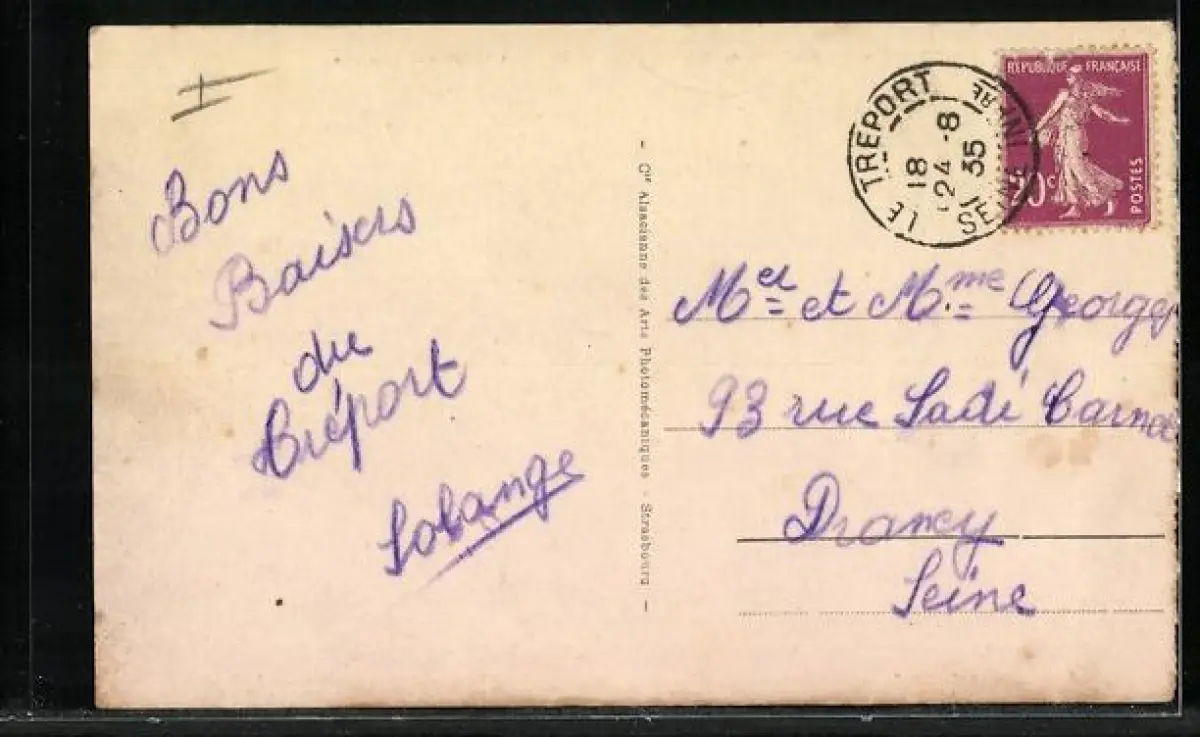 I
Bons
Baisers
du
Tréport
Solange
- Cie Alsacienne des Arts Photomécaniques - Strasbourg -
LE TREPORT SEINE INFRE
18
24 -8
35
REPUBLIQUE FRANÇAISE
20c
POSTES
Mr et Mme Georges
93 rue Sadi Carnot
Drancy
Seine